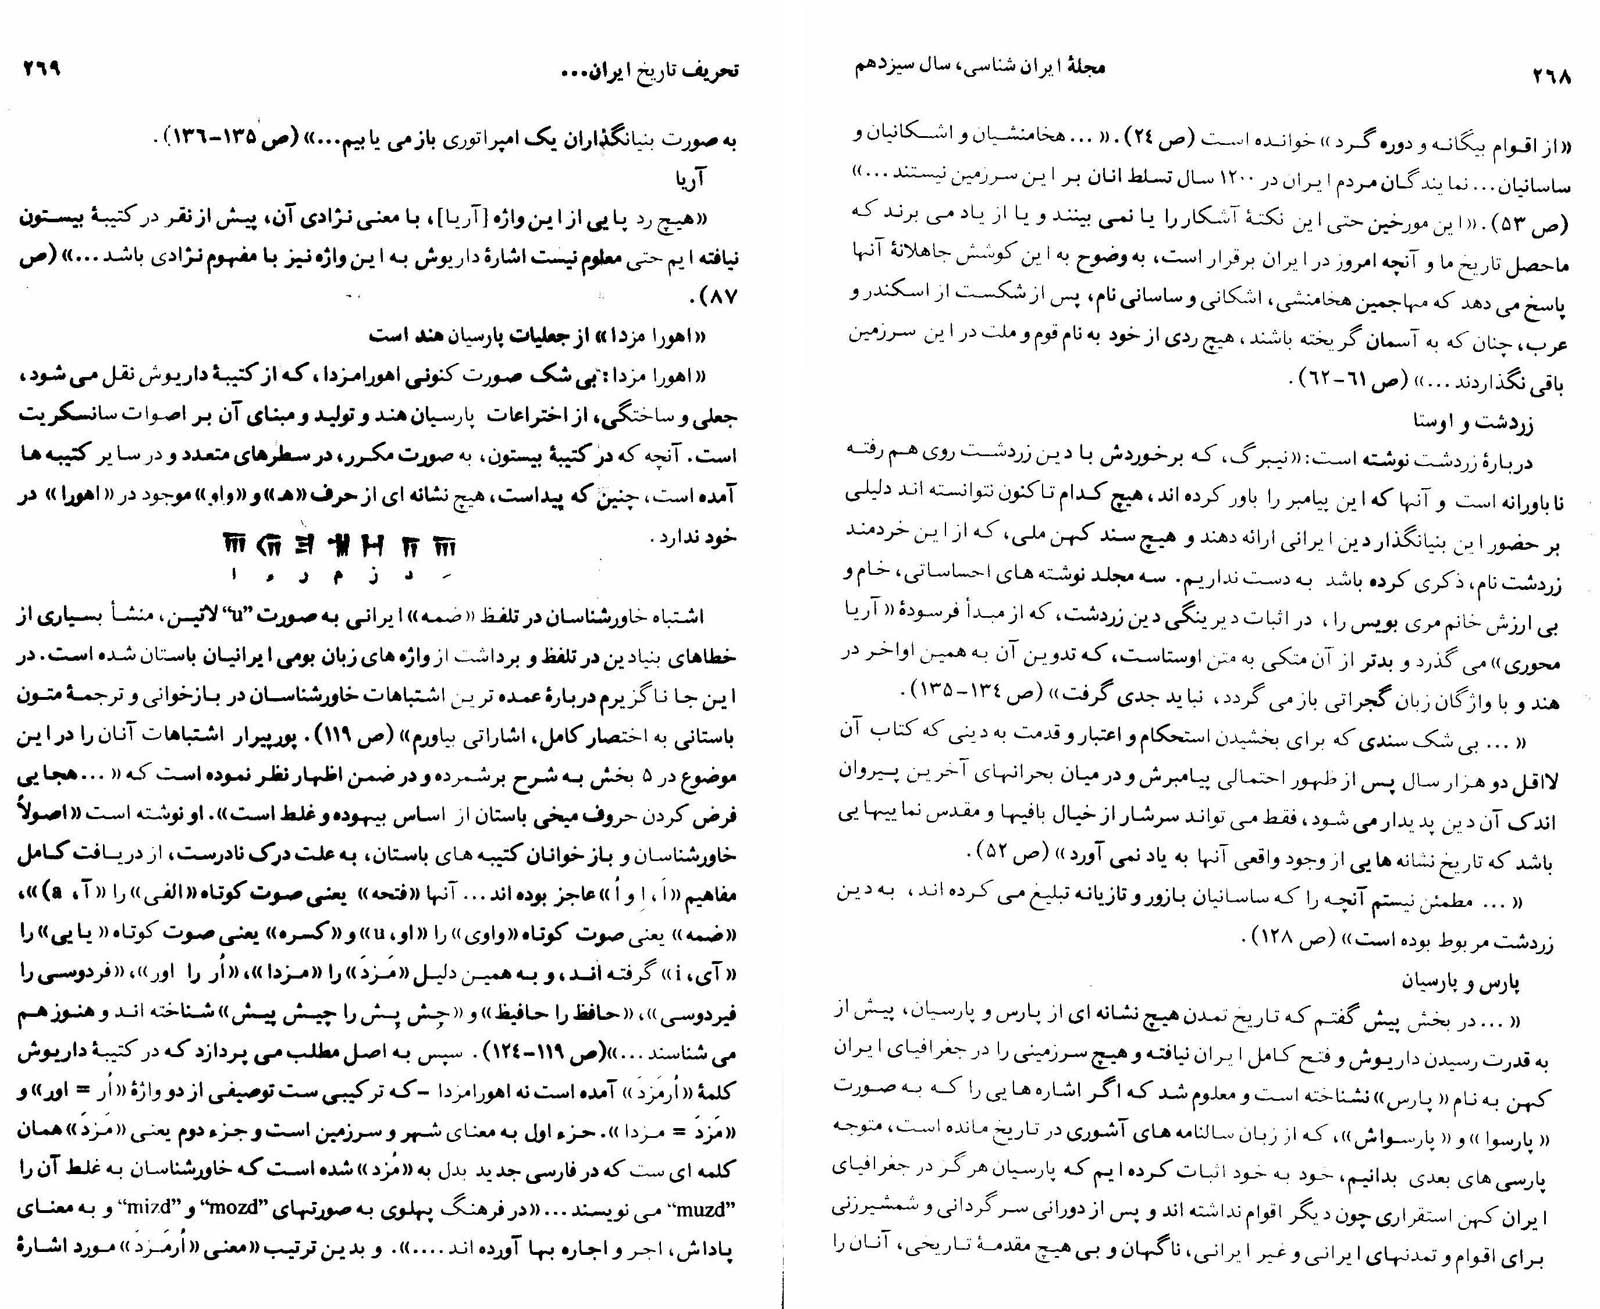 ۲۶۸
مجلهٔ ایران شناسی، سال سیزدهم
«از اقوام بیگانه و دوره گرد» خوانده است (ص ۲۴). «... هخامنشیان و اشکانیان و
ساسانیان... نمایندگان مردم ایران در ۱۲۰۰ سال تسلط انان بر این سرزمین نیستند...»
(ص ۵۳). «این مورخین حتی این نکتهٔ آشکار را یا نمی بینند و یا از یاد می برند که
ماحصل تاریخ ما و آنچه امروز در ایران برقرار است، به وضوح به این کوشش جاهلانهٔ آنها
پاسخ می دهد که مهاجمین هخامنشی، اشکانی و ساسانی نام، پس از شکست از اسکندر و
عرب، چنان که به آسمان گریخته باشند، هیچ ردی از خود به نام قوم و ملت در این سرزمین
باقی نگذاردند...» (ص ۶۱-۶۲).
زردشت و اوستا
دربارهٔ زردشت نوشته است: «نیبرگ، که برخوردش با دین زردشت روی هم رفته
ناباورانه است و آنها که این پیامبر را باور کرده اند، هیچ کدام تاکنون نتوانسته اند دلیلی
بر حضور این بنیانگذار دین ایرانی ارائه دهند و هیچ سند کهن ملی، که از این خردمند
زردشت نام، ذکری کرده باشد به دست نداریم. سه مجلد نوشته های احساساتی، خام و
بی ارزش خانم مری بویس را، در اثبات دیرینگی دین زردشت، که از مبدأ فرسودهٔ «آریا
محوری» می گذرد و بدتر از آن متکی به متن اوستاست، که تدوین آن به همین اواخر در
هند و با واژگان زبان گجراتی باز می گردد، نباید جدی گرفت» (ص ۱۳۴-۱۳۵).
«... بی شک سندی که برای بخشیدن استحکام و اعتبار و قدمت به دینی که کتاب آن
لااقل دو هزار سال پس از ظهور احتمالی پیامبرش و در میان بحرانهای آخرین پیروان
اندک آن دین پدیدار می شود، فقط می تواند سرشار از خیال بافیها و مقدس نماییهایی
باشد که تاریخ نشانه هایی از وجود واقعی آنها به یاد نمی آورد» (ص ۵۲).
«... مطمئن نیستم آنچه را که ساسانیان بازور و تازیانه تبلیغ می کرده اند، به دین
زردشت مربوط بوده است» (ص ۱۲۸).
پارس و پارسیان
«... در بخش پیش گفتم که تاریخ تمدن هیچ نشانه ای از پارس و پارسیان، پیش از
به قدرت رسیدن داریوش و فتح کامل ایران نیافته و هیچ سرزمینی را در جغرافیای ایران
کهن به نام «پارس» نشناخته است و معلوم شد که اگر اشاره هایی را که به صورت
«پارسوا» و «پارسواش»، که از زبان سالنامه های آشوری در تاریخ مانده است، متوجه
پارسی های بعدی بدانیم، خود به خود اثبات کرده ایم که پارسیان هرگز در جغرافیای
ایران کهن استقراری چون دیگر اقوام نداشته اند و پس از دورانی سرگردانی و شمشیرزنی
برای اقوام و تمدنهای ایرانی و غیر ایرانی، ناگهان و بی هیچ مقدمهٔ تاریخی، آنان را
تحریف تاریخ ایران...
۲۶۹
به صورت بنیانگذاران یک امپراتوری بازمی یابیم...» (ص ۱۳۵-۱۳۶).
آریا
«هیچ رد پایی از این واژه [آریا]، با معنی نژادی آن، پیش از نقر در کتیبهٔ بیستون
نیافته ایم حتی معلوم نیست اشارهٔ داریوش به این واژه نیز با مفهوم نژادی باشد...» (ص
۸۷).
«اهورا مزدا» از جعلیات پارسیان هند است
«اهورا مزدا: بی شک صورت کنونی اهورامزدا، که از کتیبهٔ داریوش نقل می شود،
جعلی و ساختگی، از اختراعات پارسیان هند و تولید و مبنای آن بر اصوات سانسکریت
است. آنچه که در کتیبهٔ بیستون، به صورت مکرر، در سطرهای متعدد و در سایر کتیبه ها
آمده است، چنین که پیداست، هیچ نشانه ای از حرف «هـ» و «واو» موجود در «اهورا» در
خود ندارد.
ا ر م ز د
اشتباه خاورشناسان در تلفظ «ضمه» ایرانی به صورت "u" لاتین، منشأ بسیاری از
خطاهای بنیادین در تلفظ و برداشت از واژه های زبان بومی ایرانیان باستان شده است. در
این جا ناگزیرم دربارهٔ عمده ترین اشتباهات خاورشناسان در بازخوانی و ترجمهٔ متون
باستانی به اختصار کامل، اشاراتی بیاورم» (ص ۱۱۹). پورپیرار اشتباهات آنان را در این
موضوع در ۵ بخش به شرح برشمرده و در ضمن اظهار نظر نموده است که «... هجایی
فرض کردن حروف میخی باستان از اساس بیهوده و غلط است». او نوشته است «اصولاً
خاورشناسان و بازخوانان کتیبه های باستان، به علت درک نادرست، از دریافت کامل
مفاهیم «اَ، اِ و اُ» عاجز بوده اند... آنها «فتحه» یعنی صوت کوتاه «الفی» را «آ، a)»،
«ضمه» یعنی صوت کوتاه «واوی» را «او، u» و «کسره» یعنی صوت کوتاه «یایی» را
«آی، i» گرفته اند، و به همین دلیل «مَزدَ» را «مزدا»، «اُر را اور»، «فردوسی را
فیردوسی»، «حافظ را حافیظ» و «چِش پِش را چیش پیش» شناخته اند و هنوز هم
می شناسند...» (ص ۱۱۹-۱۲۴). سپس به اصل مطلب می پردازد که در کتیبهٔ داریوش
کلمهٔ «اُرمَزدَ» آمده است نه اهورامزدا -که ترکیبی ست توصیفی از دو واژهٔ «اُر = اور» و
«مَزدَ = مزدا». جزء اول به معنای شهر و سرزمین است و جزء دوم یعنی «مَزدَ» همان
کلمه ای ست که در فارسی جدید بدل به «مُزد» شده است که خاورشناسان به غلط آن را
"muzd" می نویسند... «در فرهنگ پهلوی به صورتهای "mozd" و "mizd" و به معنای
پاداش، اجر و اجاره بها آورده اند....». و بدین ترتیب «معنی «اُرمَزدَ» مورد اشارهٔ